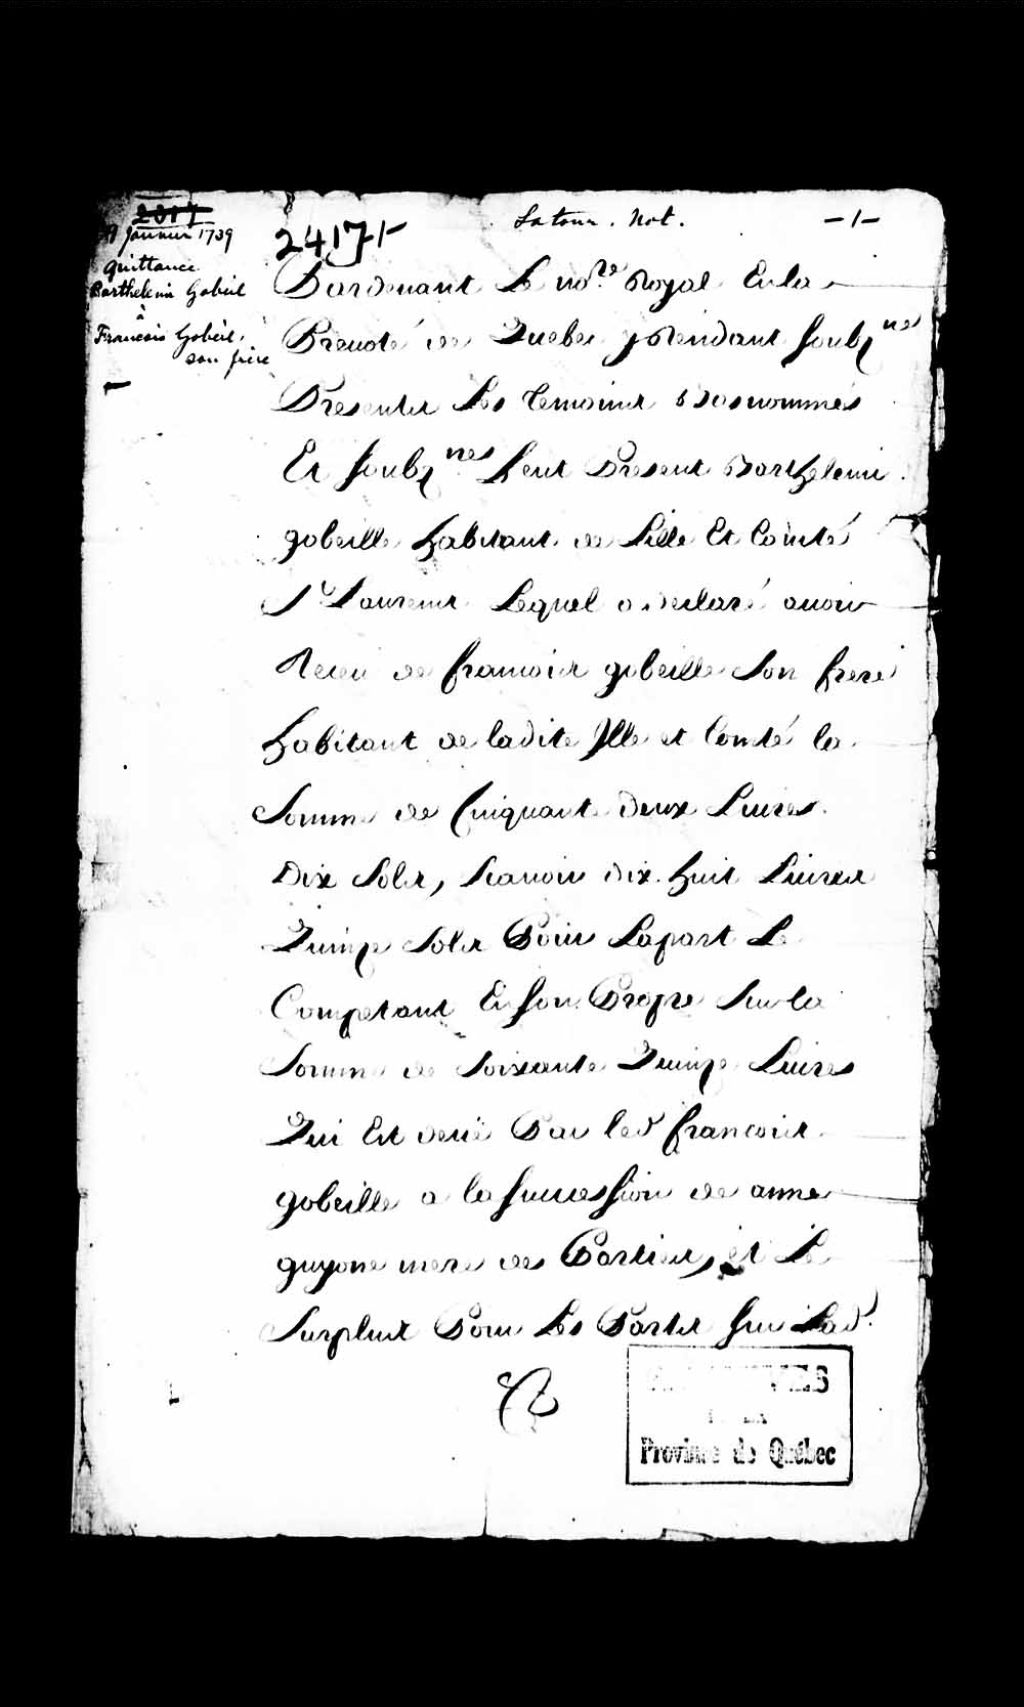 2017
Janvier 1709
quittance
Barthelemi Gobeil
à
Francois Gobeil,
son frère
Latour. Not.
-1-
2417
Pardevant Le no.re Royal En la
Prevoté de Quebec y Residant soubz.nes
Presenter Les temoins
Et soubz.nes feut Present Barthelemi
gobeille habitant de Lille Et Comté
St Laurent Lequel a declaré avoir
Receu de francois gobeille Son frere
habitant de ladite Jlle et Comté la
Somme de Cinquante deux Livres
Dix Solz, scavoir dix huit Livres
Quinze Solz Pour La part Le
Competant En son Propre Sur la
Somme de Soixante Quinze Livres
Qui Est deue Par led francois
gobeille a la succession de anne
guyone mere des Parties, et Le
Surplus Pour Les Partes sur Lad.
Province de Québec